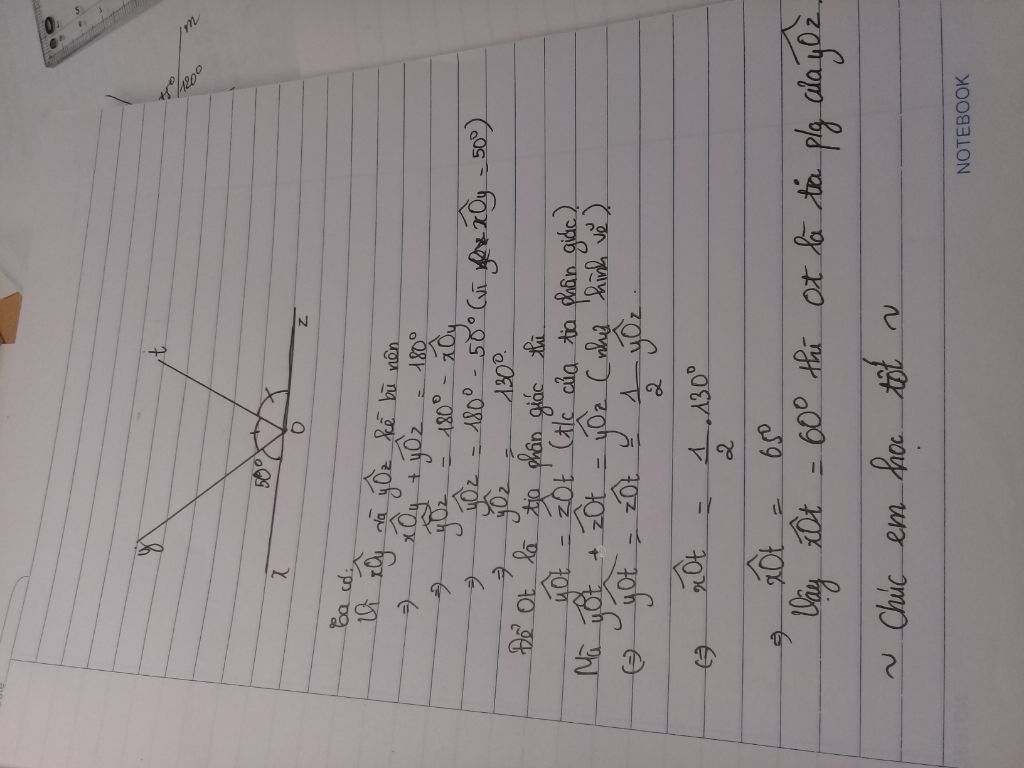 m
120°
y
t
50°
x
O
z
Ta có:
Vì xOy và yOz kề bù nên
=> xOy + yOz = 180°
=> yOz = 180° - xOy
=> yOz = 180° - 50° (vì xOy = 50°)
=> yOz = 130°.
Để Ot là tia phân giác thì
yOt = zOt (t/c của tia phân giác)
Mà yOt + zOt = yOz (như hình vẽ)
(=) yOt = zOt = 1/2 yOz.
(=) xOt = 1/2 . 130°
=> xOt = 65°
Vậy xOt = 60° thì Ot là tia p/g của yOz.
~ Chúc em học tốt ~
NOTEBOOK